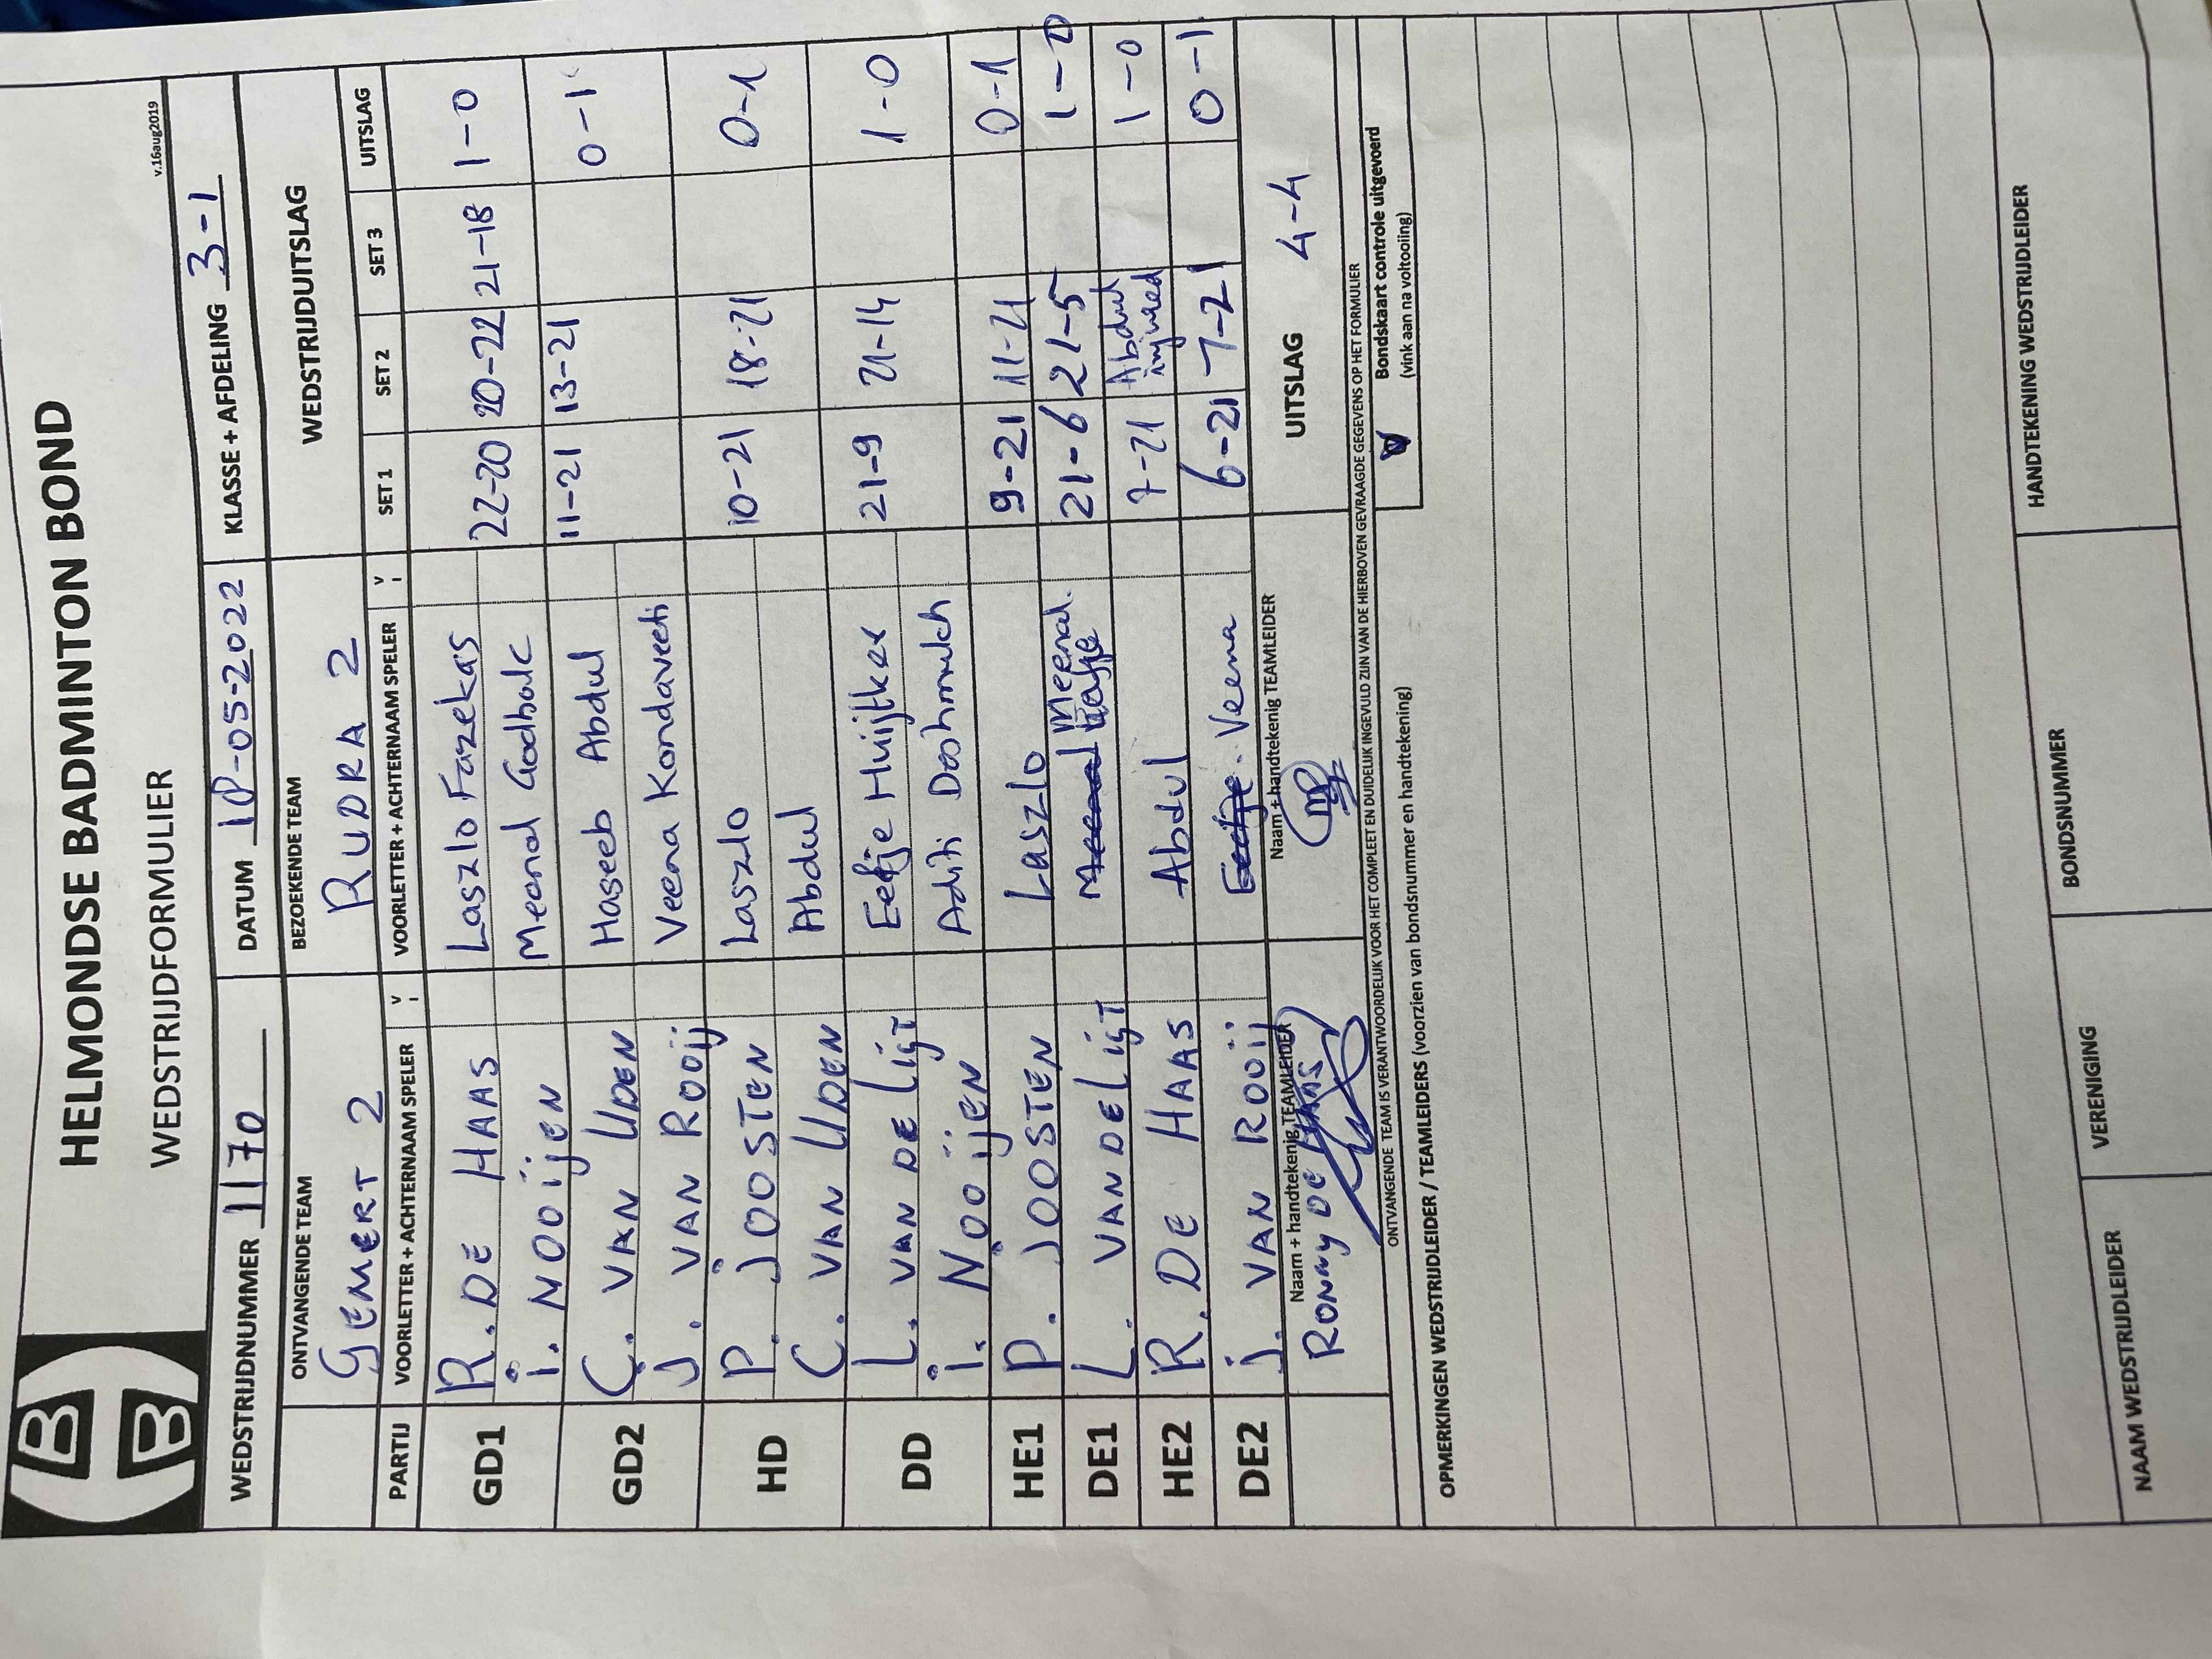 HELMONDSE BADMINTON BOND
WEDSTRIJDFORMULIER
v.16aug2019
WEDSTRIJDNUMMER 1170 DATUM 10-05-2022 KLASSE + AFDELING 3-1
ONTVANGENDE TEAM BEZOEKENDE TEAM WEDSTRIJDUITSLAG
GEMERT 2 RUDRA 2
PARTIJ VOORLETTER + ACHTERNAAM SPELER V VOORLETTER + ACHTERNAAM SPELER V SET 1 SET 2 SET 3 UITSLAG
GD1 R. DE HAAS Laszlo Fazekas 22-20 20-22 21-18 1-0
i. NOOijEN Meenal Godbole
GD2 C. VAN UDEN Haseeb Abdul 11-21 13-21 0-1
J. VAN ROOij Veena Kondaveeti
HD P. JOOSTEN Laszlo 10-21 18-21 0-1
C. VAN UDEN Abdul
DD L. VAN DE LigT Eefje Huijtker 21-9 21-14 1-0
i. NOOijEN Aditi Dashmukh
HE1 P. JOOSTEN Laszlo 9-21 11-21 0-1
DE1 L. VAN DE LigT Meenal. 21-6 21-5 1-0
HE2 R. DE HAAS Abdul 7-21 Abdul injured 1-0
DE2 j. VAN ROOij Veena 6-21 7-21 0-1
Naam + handtekenig TEAMLEIDER Naam + handtekenig TEAMLEIDER UITSLAG 4-4
RONNY DE HAAS
ONTVANGENDE TEAM IS VERANTWOORDELIJK VOOR HET COMPLEET EN DUIDELIJK INGEVULD ZIJN VAN DE HIERBOVEN GEVRAAGDE GEGEVENS OP HET FORMULIER
Bondskaart controle uitgevoerd
(vink aan na voltooiing)
OPMERKINGEN WEDSTRIJDLEIDER / TEAMLEIDERS (voorzien van bondsnummer en handtekening)
NAAM WEDSTRIJDLEIDER VERENIGING BONDSNUMMER HANDTEKENING WEDSTRIJDLEIDER